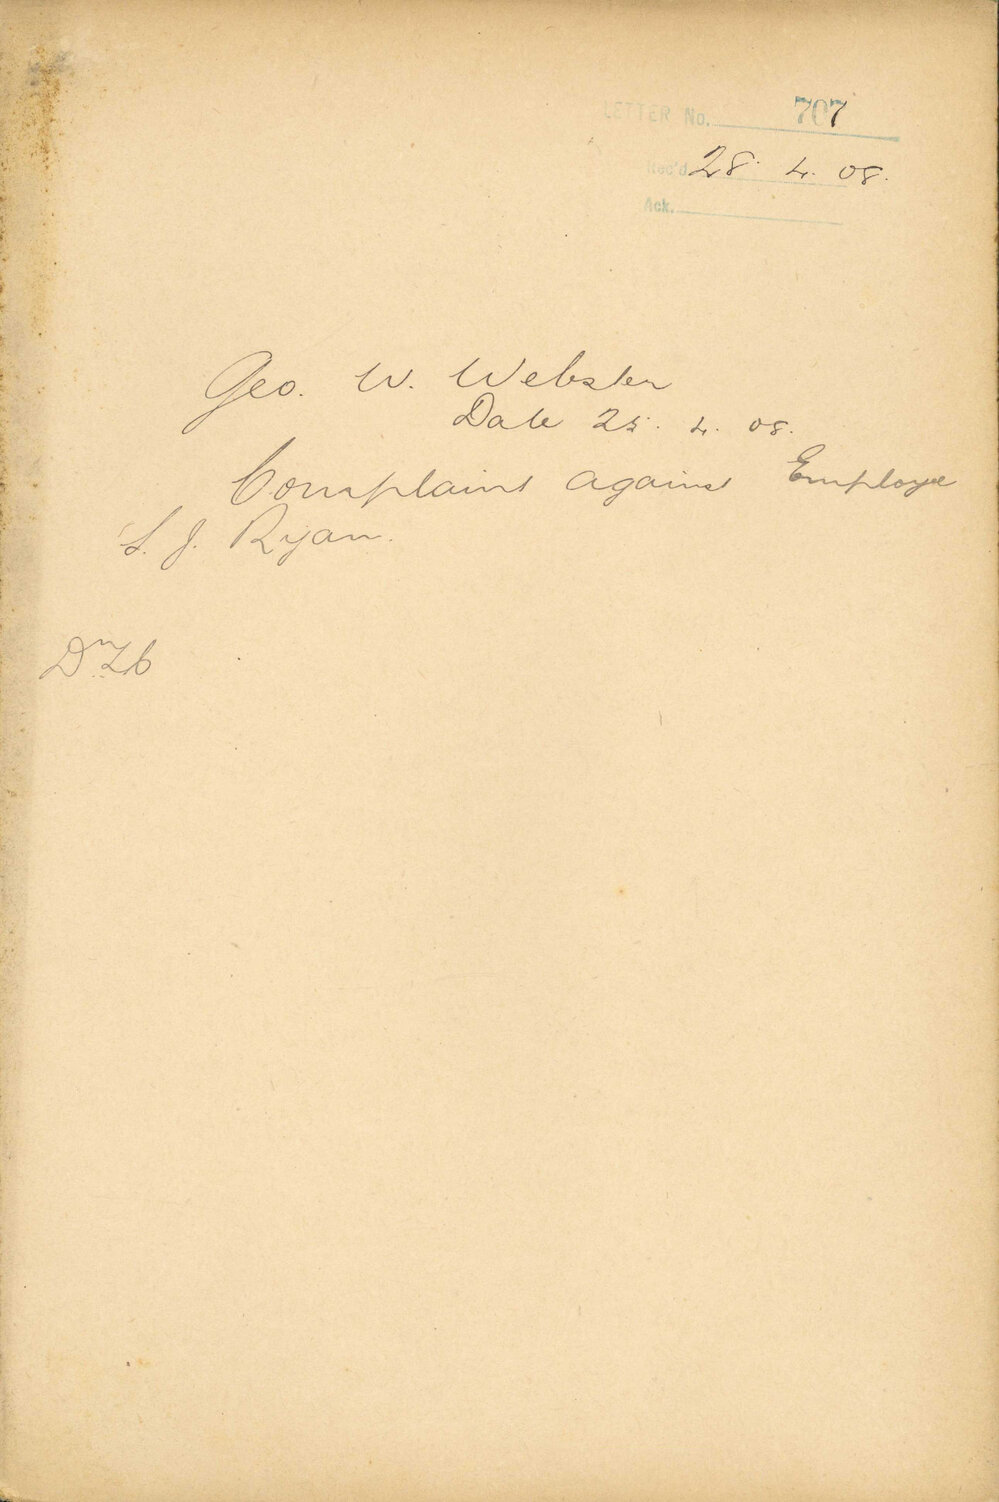 LETTER No. 707
Rec'd. 28. 4. 08.
Ack.
Geo. W. Webster
Date 25. 4. 08.
Complaint against Employe
S. J. Ryan.